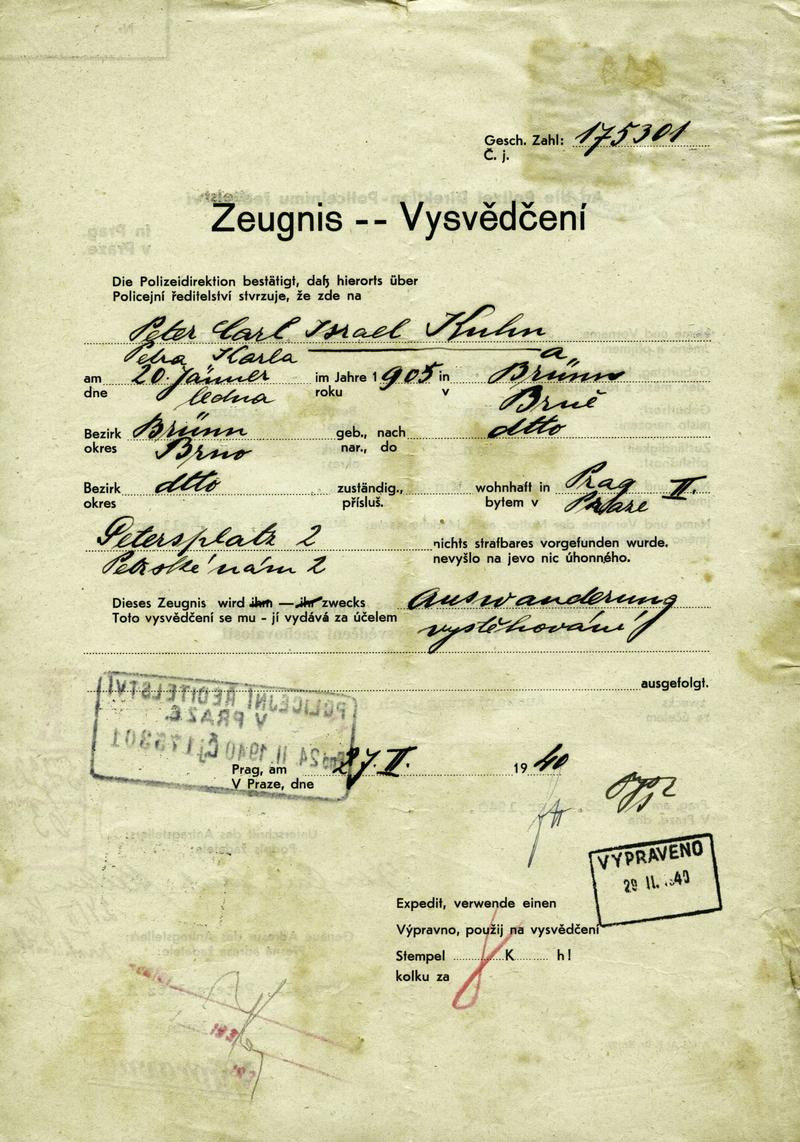 Gesch. Zahl: 175301
Č. j.
Zeugnis -- Vysvědčení
Die Polizeidirektion bestätigt, daß hierorts über
Policejní ředitelství stvrzuje, že zde na
Peter Carl Israel Kuhn
Petra Karla a
am 20. Jänner im Jahre 1905 in Brünn
dne ledna roku v Brně
Bezirk Brünn geb., nach dtto
okres Brno nar., do
Bezirk dtto zuständig., wohnhaft in Prag II.
okres přísluš. bytem v Praze
Petersplatz 2 nichts strafbares vorgefunden wurde.
Petrské nám 2 nevyšlo na jevo nic úhonného.
Dieses Zeugnis wird ihm — ihr zwecks Auswanderung
Toto vysvědčení se mu - jí vydává za účelem vystěhování
ausgefolgt.
POLICEJNÍ ŘEDITELSTVÍ
V PRAZE
24 II 1940 Čj 175301
Prag, am 27. II. 1940
V Praze, dne
VYPRAVENO
29 II. 40
Expedit, verwende einen
Výpravno, použij na vysvědčení
Stempel K h!
kolku za 8